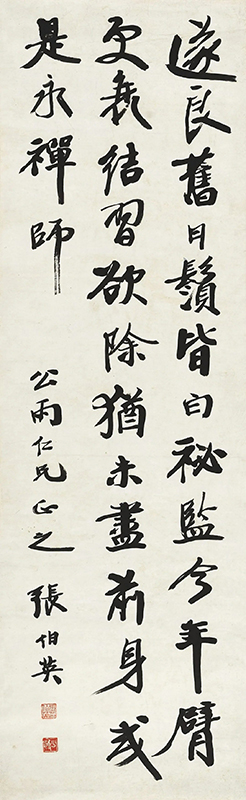 遂良舊日鬚皆白祕監今年臂
更衰結習欲除猶未盡前身或
是永禪師
公雨仁兄正之
張伯英